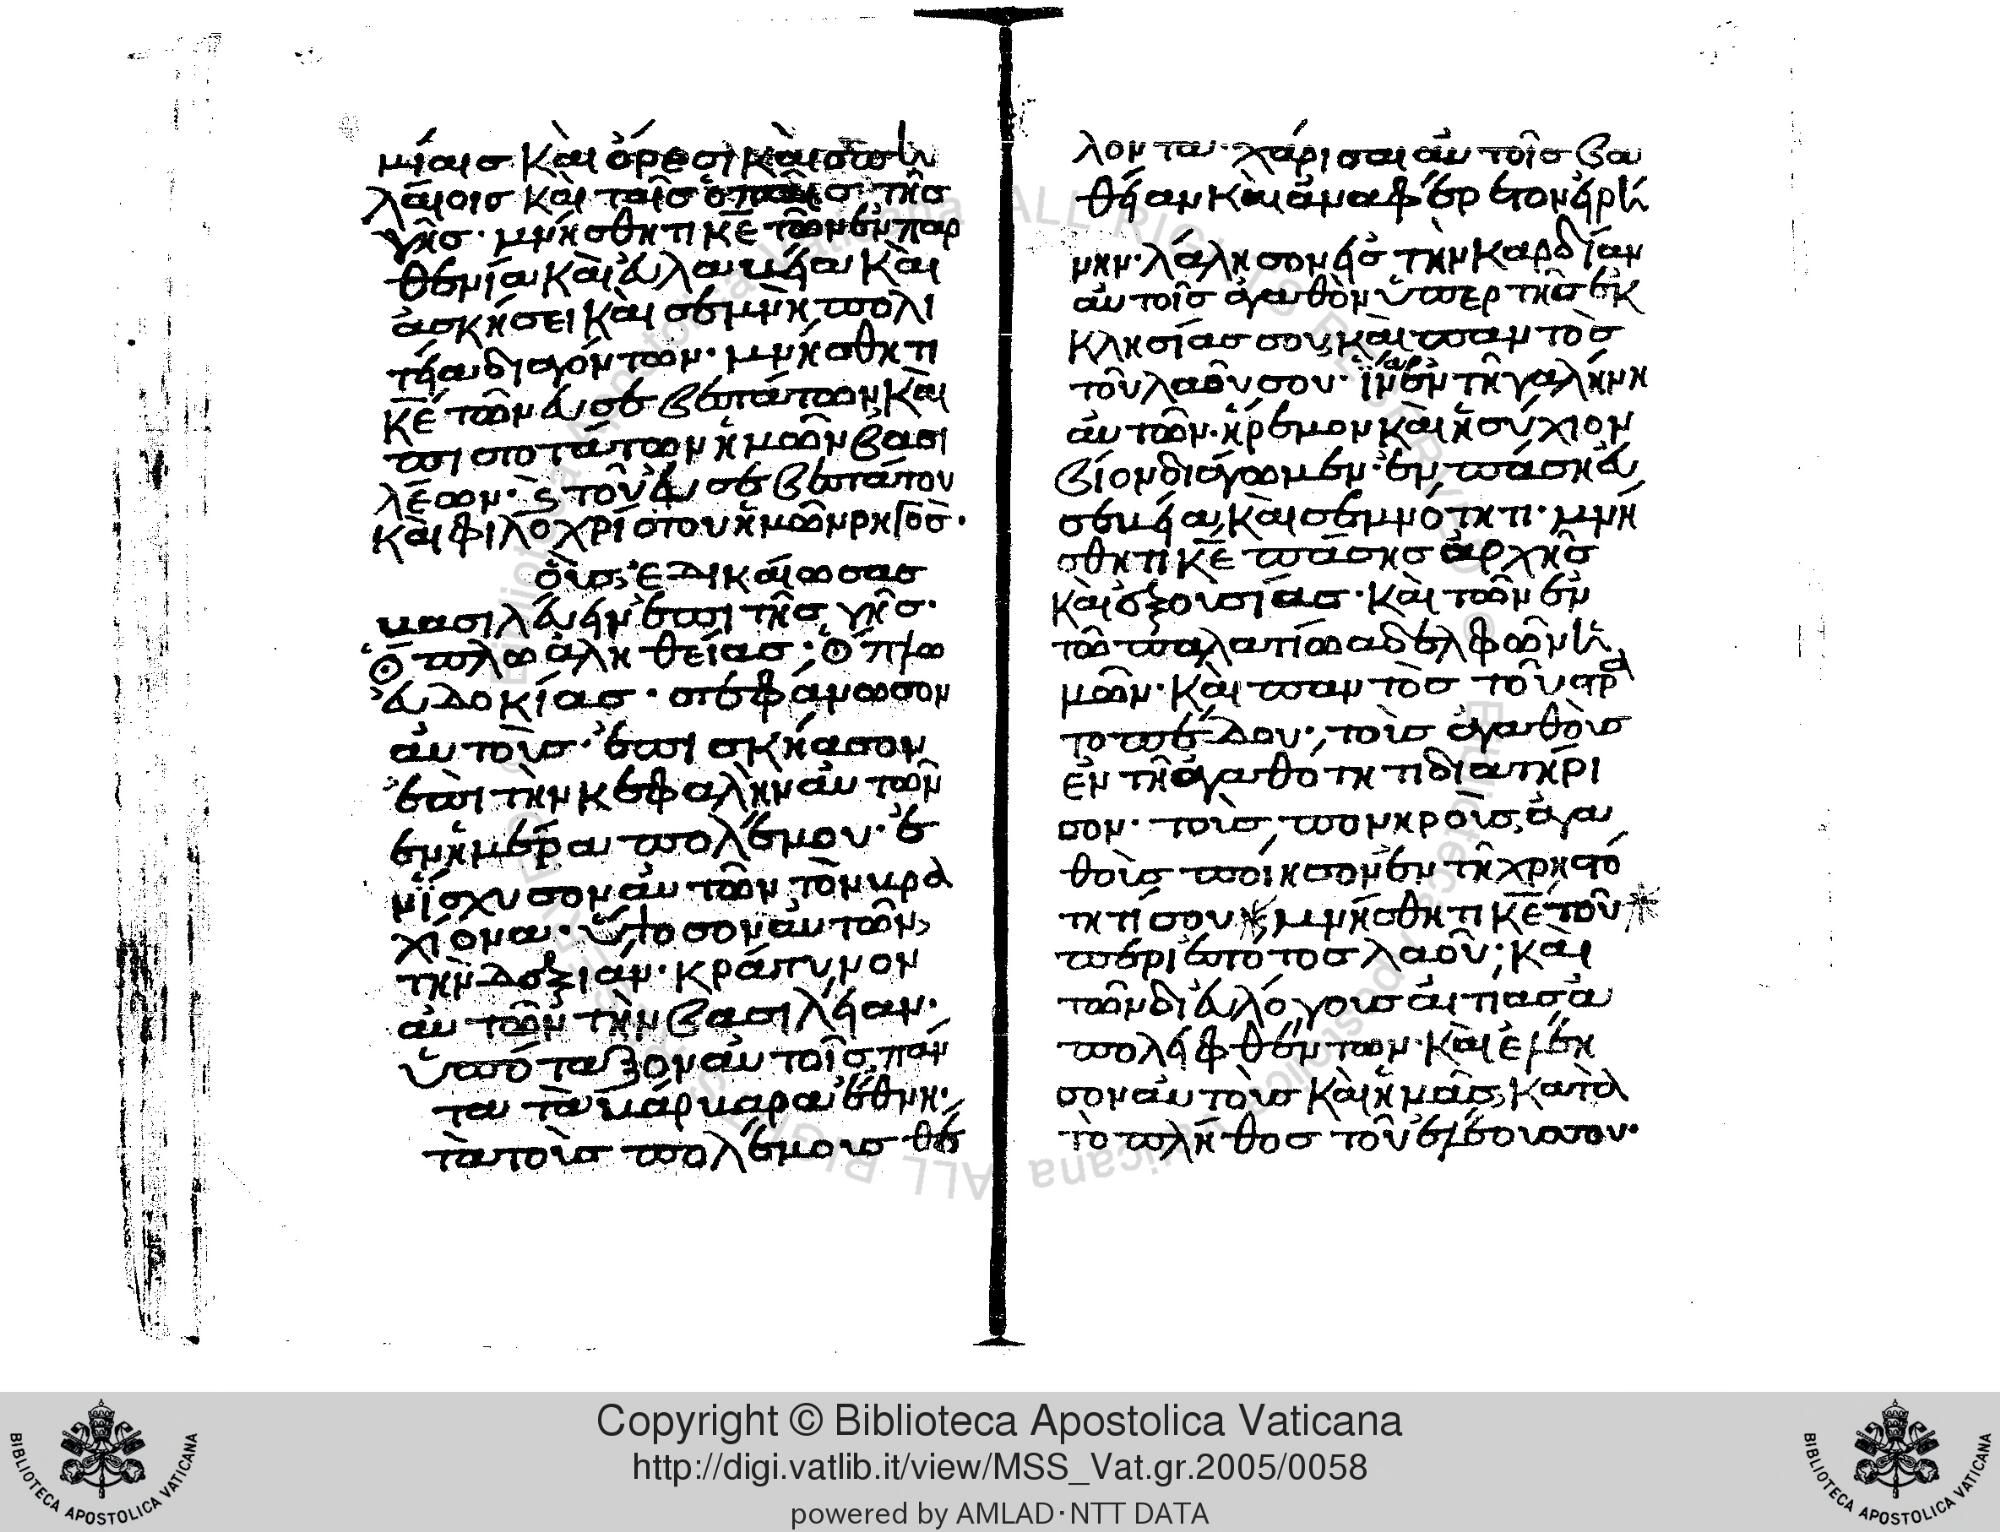 μίαις καὶ ὄρεσι καὶ σπη
λαίοις καὶ ταῖς ὀπαῖς τῆς
γῆς· μνήσθητι κ̅ε̅ τῶν ἐν παρ
θενία καὶ εὐλαβεία καὶ
ἀσκήσει καὶ σεμνὴ πολι
τεία διαγόντων· μνήσθητι
κ̅ε̅ τῶν εὐσεβεστάτων καὶ
πιστοτάτων ἡμῶν βασι
λέων· ϛ τοῦ εὐσεβεστάτου
καὶ φιλοχρίστου ἡμῶν ρηγὸς·
οὓς ἐδικαίωσας
βασιλεύειν ἐπὶ τῆς γῆς·
ὅπλω ἀληθείας· ὅπλω
εὐδοκίας· στεφάνωσον
αὐτούς· ἐπισκήασον
ἐπὶ τὴν κεφαλὴν αὐτῶν
ἐν ἡμέρα πολέμου· ἐ
νΐσχυσον αὐτῶν τὸν βρα
χίονα· ὕψοσον αὐτῶν
τὴν δεξιάν· κράτυνον
αὐτῶν τὴν βασιλείαν·
ὑπόταξον αὐτοῖς πάν
τα τὰ βάρβαρα ἔθνη·
τὰ τοὺς πολέμους θέ
λοντα· χάρισαι αὐτοῖς βα
θείαν καὶ ἀναφέρετον εἰρή
νην· λάλησον εἰς τὴν καρδίαν
αὐτοῖς ἀγαθὸν ὑπερ τῆς ἐκ
κλησίας σου, καὶ παντὸς
τοῦ λαοῦ σου· ἵνα ἐν τῆ γαλήνη
αὐτῶν· ἤρεμον καὶ ἡσύχιον
βίον διάγωμεν· ἐν πάση εὐ
σεβεία, καὶ σεμνότητι· μνή
σθητι κ̅ε̅ πάσης ἀρχῆς
καὶ ἐξουσίας· καὶ τῶν ἐν
τῶ παλατίω ἀδελφῶν ἡ
μῶν· καὶ παντὸς τοῦ στρα
τοπέδου· τοὺς ἀγαθοὺς
ἐν τῆ ἀγαθότητι διατήρι
σον· τοὺς πονηροὺς, ἀγα
θοὺς ποίησον ἐν τῆ χρηστό
τητί σου μνήσθητι κ̅ε̅ τοῦ
περιεστότος λαοῦ· καὶ
τῶν δι εὐλόγους αἰτίας ἀ
πολειφθέντων· καὶ ἐλέη
σον αὐτοὺς καὶ ἡμᾶς, κατὰ
τὸ πλῆθος τοῦ ἐλέους σου·
Copyright © Biblioteca Apostolica Vaticana
http://digi.vatlib.it/view/MSS_Vat.gr.2005/0058
powered by AMLAD·NTT DATA
BIBLIOTECA APOSTOLICA VATICANA
BIBLIOTECA APOSTOLICA VATICANA